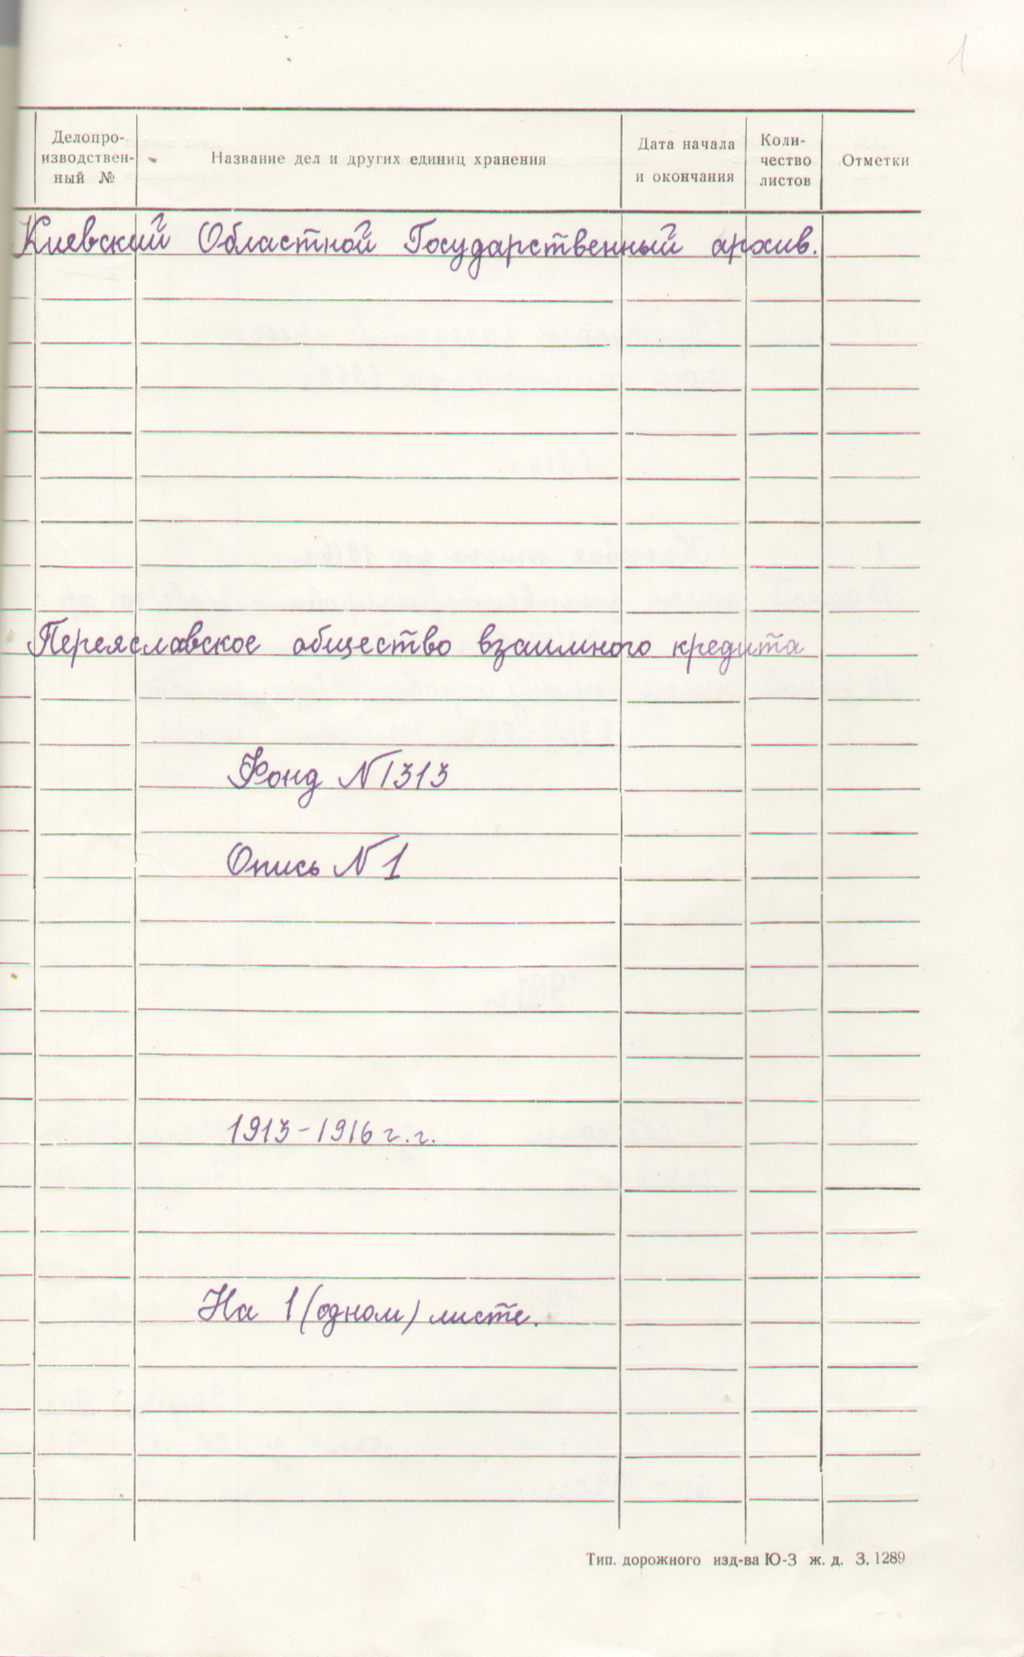 1
Делопро-
изводствен-
ный №
Название дел и других единиц хранения
Дата начала
и окончания
Коли-
чество
листов
Отметки
Киевский Областной Государственный архив.
Переяславское общество взаимного кредита
Фонд N1313
Опись N1
1913-1916 г.г.
На 1 (одном) листе.
Тип. дорожного изд-ва Ю-З ж. д. З. 1289